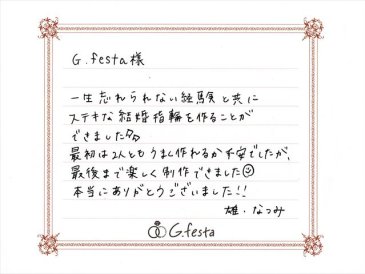 G.festa様
一生忘れられない経験と共に
ステキな結婚指輪を作ることが
できました
最初は2人ともうまく作れるか不安でしたが、
最後まで楽しく制作できました☺
本当にありがとうございました!!
雄・なつみ
G.festa